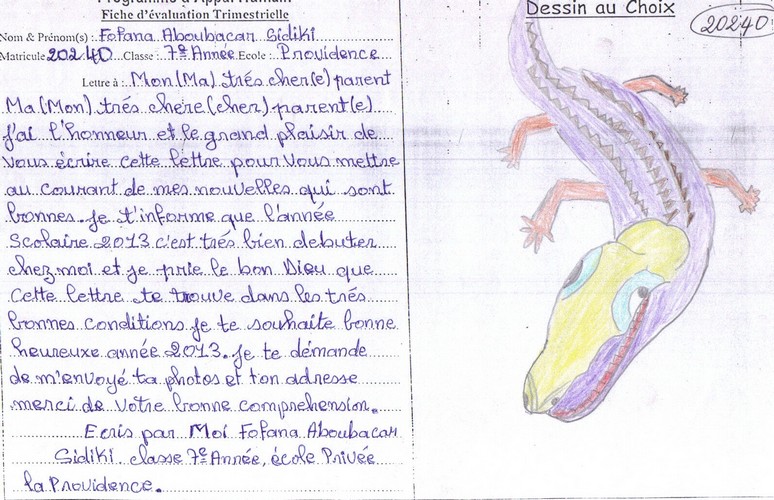 Programme d'Appui Humain
Fiche d'évaluation Trimestrielle
Nom & Prénom(s) : Fofana Aboubacar Sidiki
Matricule 20240 Classe : 7e Année Ecole : Providence
Lettre à : Mon (Ma) trés cher(e) parent
Ma (Mon) trés chere (cher) parent(e)
j'ai l'honneur et le grand plaisir de
vous écrire cette lettre pour vous mettre
au courant de mes nouvelles qui sont
bonnes. je t'informe que l'année
Scolaire 2013 c'est trés bien debuter
chez moi et je prie le bon Dieu que
cette lettre te trouve dans les trés
bonnes conditions je te souhaite bonne
heureuxe année 2013. je te démande
de m'envoyé ta photos et ton adresse
merci de votre bonne comprehension.
Ecris par Moi Fofana Aboubacar
Sidiki classe 7e Année, école Privée
la Providence.
Dessin au Choix
20240